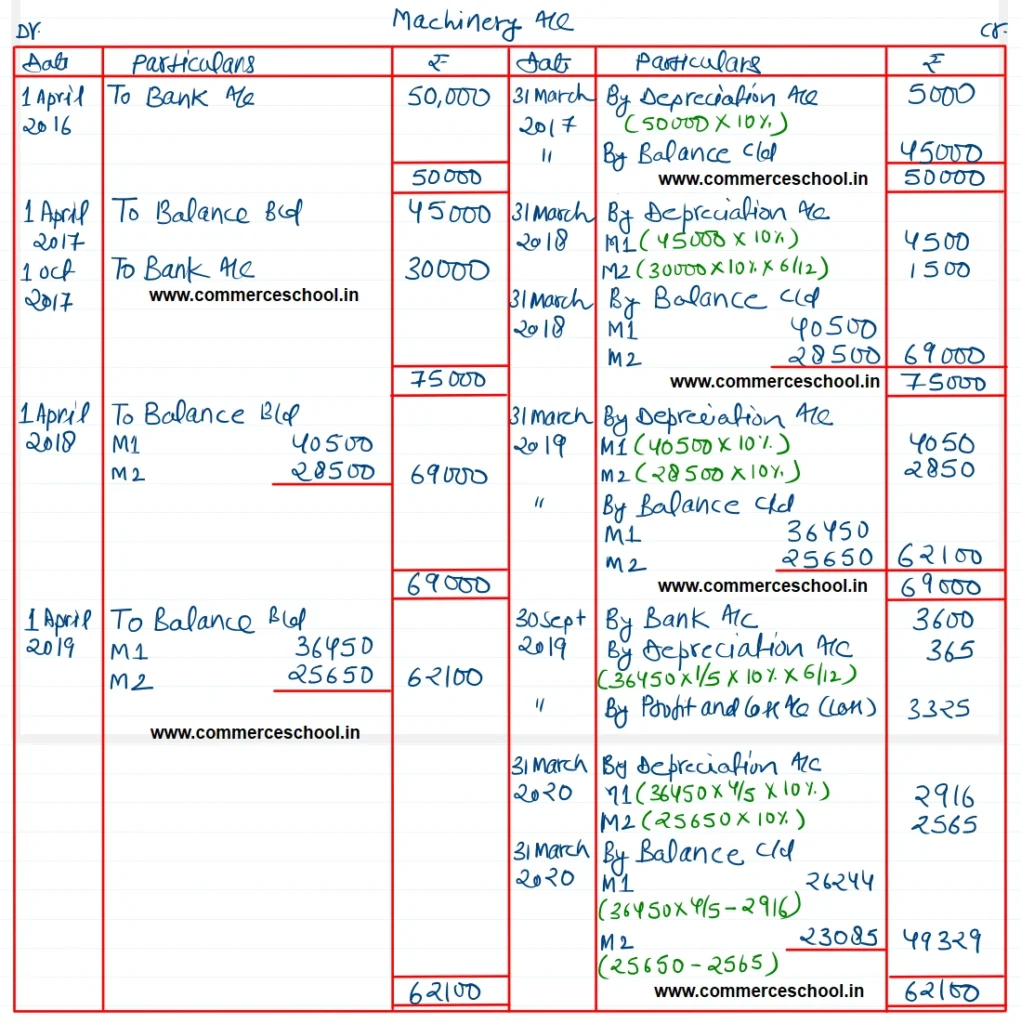 Machinery A/c
Dr. Cr.
Date Particulars ₹ Date Particulars ₹
1 April To Bank A/c 50,000 31 March By Depreciation A/c 5000
2016 2017 (50000 X 10%)
" By Balance c/d 45000
50000 www.commerceschool.in 50000
1 April To Balance B/d 45000 31 March By Depreciation A/c
2017 2018 M1 (45000 X 10%) 4500
1 Oct To Bank A/c 30000 M2 (30000 X 10% X 6/12) 1500
2017 www.commerceschool.in 31 March By Balance c/d
2018 M1 40500
M2 28500 69000
75000 www.commerceschool.in 75000
1 April To Balance B/d 31 March By Depreciation A/c
2018 M1 40500 2019 M1 (40500 X 10%) 4050
M2 28500 69000 M2 (28500 X 10%) 2850
" By Balance c/d
M1 36450
M2 25650 62100
69000 www.commerceschool.in 69000
1 April To Balance B/d 30 Sept By Bank A/c 3600
2019 M1 36450 2019 By Depreciation A/c 365
M2 25650 62100 (36450 X 1/5 X 10% X 6/12)
" By Profit and Loss A/c (Loss) 3325
www.commerceschool.in
31 March By Depreciation A/c
2020 M1 (36450 X 4/5 X 10%) 2916
M2 (25650 X 10%) 2565
31 March By Balance c/d
2020 M1 26244
(36450 X 4/5 - 2916)
M2 23085 49329
(25650 - 2565)
62100 www.commerceschool.in 62100